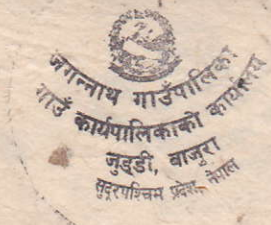 जगन्नाथ गाउँपालिका
गाउँ कार्यपालिकाको कार्यालय
जुडडी, बाजुरा
सुदूरपश्चिम प्रदेश, नेपाल